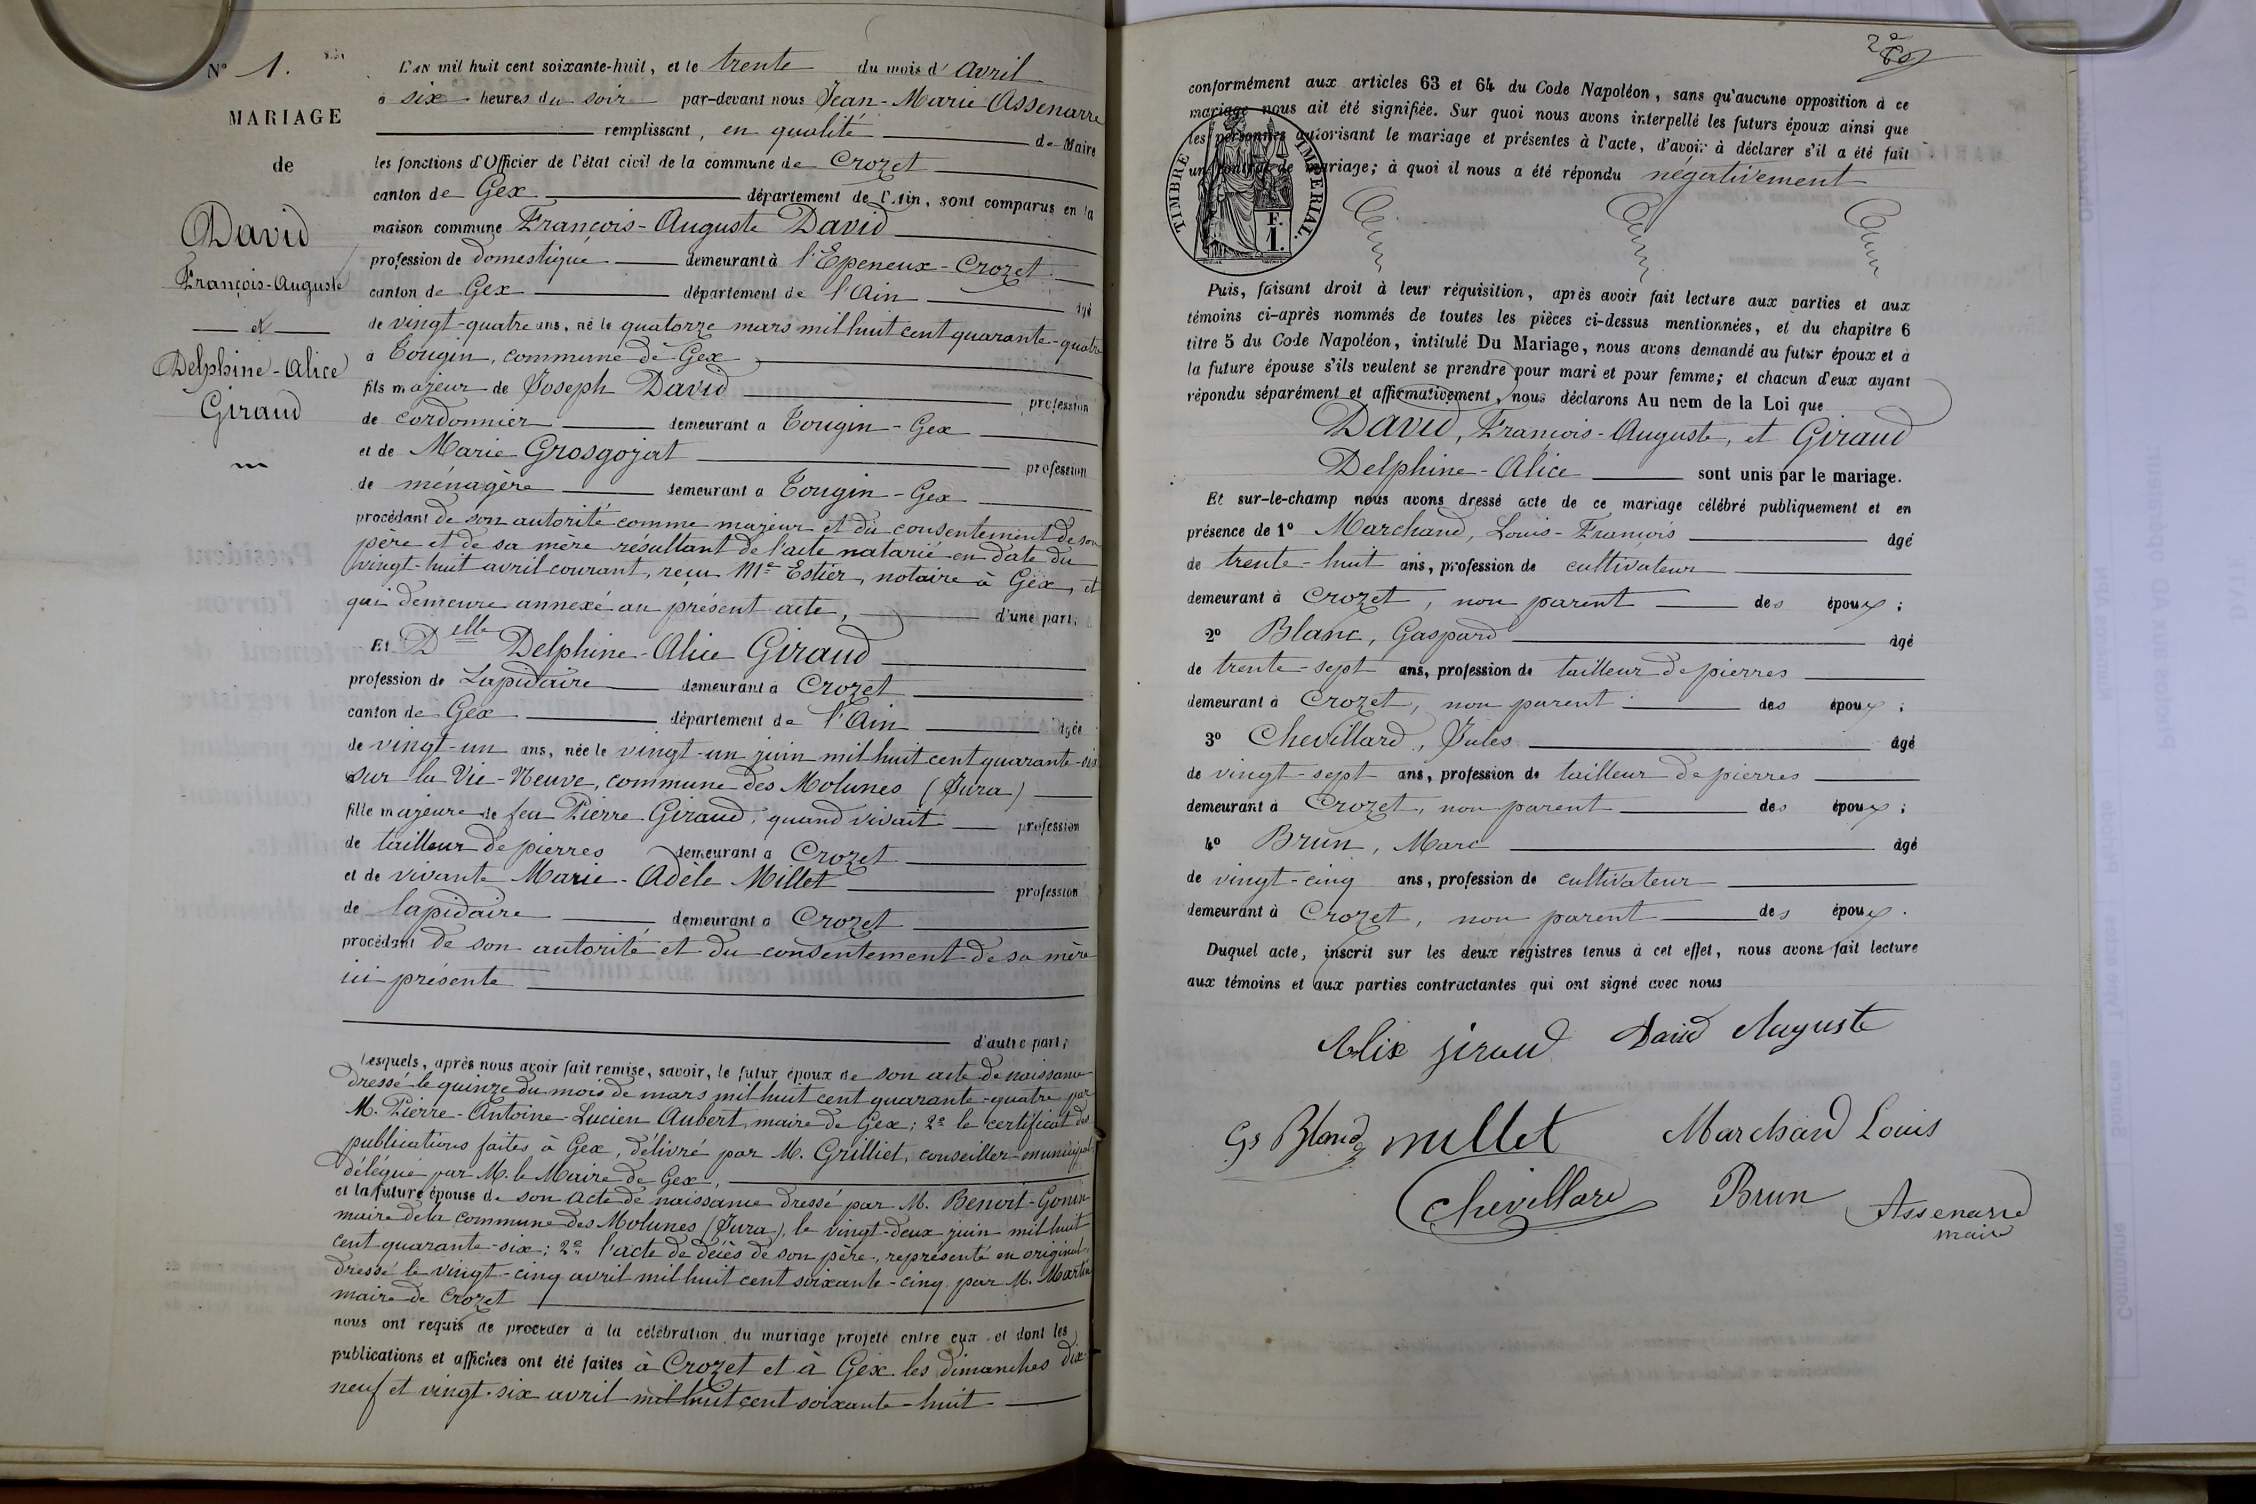 N° 1.
MARIAGE
de
David
François-Auguste
et
Delphine-Alice
Giraud
L'AN mil huit cent soixante-huit, et le trente du mois d'avril
à six heures du soir par-devant nous Jean-Marie Assenarre
remplissant, en qualité de Maire
les fonctions d'Officier de l'état civil de la commune de Crozet
canton de Gex département de l'Ain, sont comparus en la
maison commune François-Auguste David
profession de domestique demeurant à l'Epeneux-Crozet
canton de Gex département de l'Ain âgé
de vingt-quatre ans, né le quatorze mars mil huit cent quarante-quatre
à Tougin, commune de Gex
fils majeur de Joseph David profession
de cordonnier demeurant à Tougin-Gex
et de Marie Grosgojat profession
de ménagère demeurant à Tougin-Gex
procédant de son autorité comme majeur et du consentement de son
père et de sa mère résultant de l'acte notarié en date du
vingt-huit avril courant, reçu Me Estier, notaire à Gex, et
qui demeure annexé au présent acte, d'une part;
Et Delle Delphine-Alice Giraud
profession de Lapidaire demeurant à Crozet
canton de Gex département de l'Ain âgée
de vingt-un ans, née le vingt-un juin mil huit cent quarante-six
sur la Vie-Neuve, commune des Molunes (Jura)
fille majeure de feu Pierre Giraud, quand vivait profession
de tailleur de pierres demeurant à Crozet
et de vivante Marie-Adèle Millet profession
de lapidaire demeurant à Crozet
procédant de son autorité et du consentement de sa mère
ici présente
d'autre part;
Lesquels, après nous avoir fait remise, savoir, le futur époux de son acte de naissance
dressé le quinze du mois de mars mil huit cent quarante-quatre par
M. Pierre-Antoine-Lucien Aubert, maire de Gex; 2° le certificat des
publications faites à Gex, délivré par M. Grilliet, conseiller municipal
délégué par M. le Maire de Gex,
et la future épouse de son acte de naissance dressé par M. Benoit-Gonin
maire de la commune des Molunes (Jura), le vingt-deux juin mil huit
cent quarante-six; 2° l'acte de décès de son père, représenté en original,
dressé le vingt-cinq avril mil huit cent soixante-cinq par M. Martin
maire de Crozet
nous ont requis de procéder à la célébration du mariage projeté entre eux et dont les
publications et affiches ont été faites à Crozet et à Gex les dimanches dix-
neuf et vingt-six avril mil huit cent soixante-huit
conformément aux articles 63 et 64 du Code Napoléon, sans qu'aucune opposition à ce
mariage nous ait été signifiée. Sur quoi nous avons interpellé les futurs époux ainsi que
les personnes autorisant le mariage et présentes à l'acte, d'avoir à déclarer s'il a été fait
un contrat de mariage; à quoi il nous a été répondu négativement
TIMBRE IMPERIAL.
F.
1.
Puis, faisant droit à leur réquisition, après avoir fait lecture aux parties et aux
témoins ci-après nommés de toutes les pièces ci-dessus mentionnées, et du chapitre 6
titre 5 du Code Napoléon, intitulé Du Mariage, nous avons demandé au futur époux et à
la future épouse s'ils veulent se prendre pour mari et pour femme; et chacun d'eux ayant
répondu séparément et affirmativement, nous déclarons Au nom de la Loi que
David, François-Auguste, et Giraud
Delphine-Alice sont unis par le mariage.
Et sur-le-champ nous avons dressé acte de ce mariage célébré publiquement et en
présence de 1° Marchand, Louis-François âgé
de trente-huit ans, profession de cultivateur
demeurant à Crozet, non parent des époux;
2° Blanc, Gaspard âgé
de trente-sept ans, profession de tailleur de pierres
demeurant à Crozet, non parent des époux;
3° Chevillard, Jules âgé
de vingt-sept ans, profession de tailleur de pierres
demeurant à Crozet, non parent des époux;
4° Brun, Marc âgé
de vingt-cinq ans, profession de cultivateur
demeurant à Crozet, non parent des époux.
Duquel acte, inscrit sur les deux registres tenus à cet effet, nous avons fait lecture
aux témoins et aux parties contractantes qui ont signé avec nous
Alix Giraud David Auguste
Gs Blanc Millet Marchand Louis
Chevillard Brun Assenarre
maire